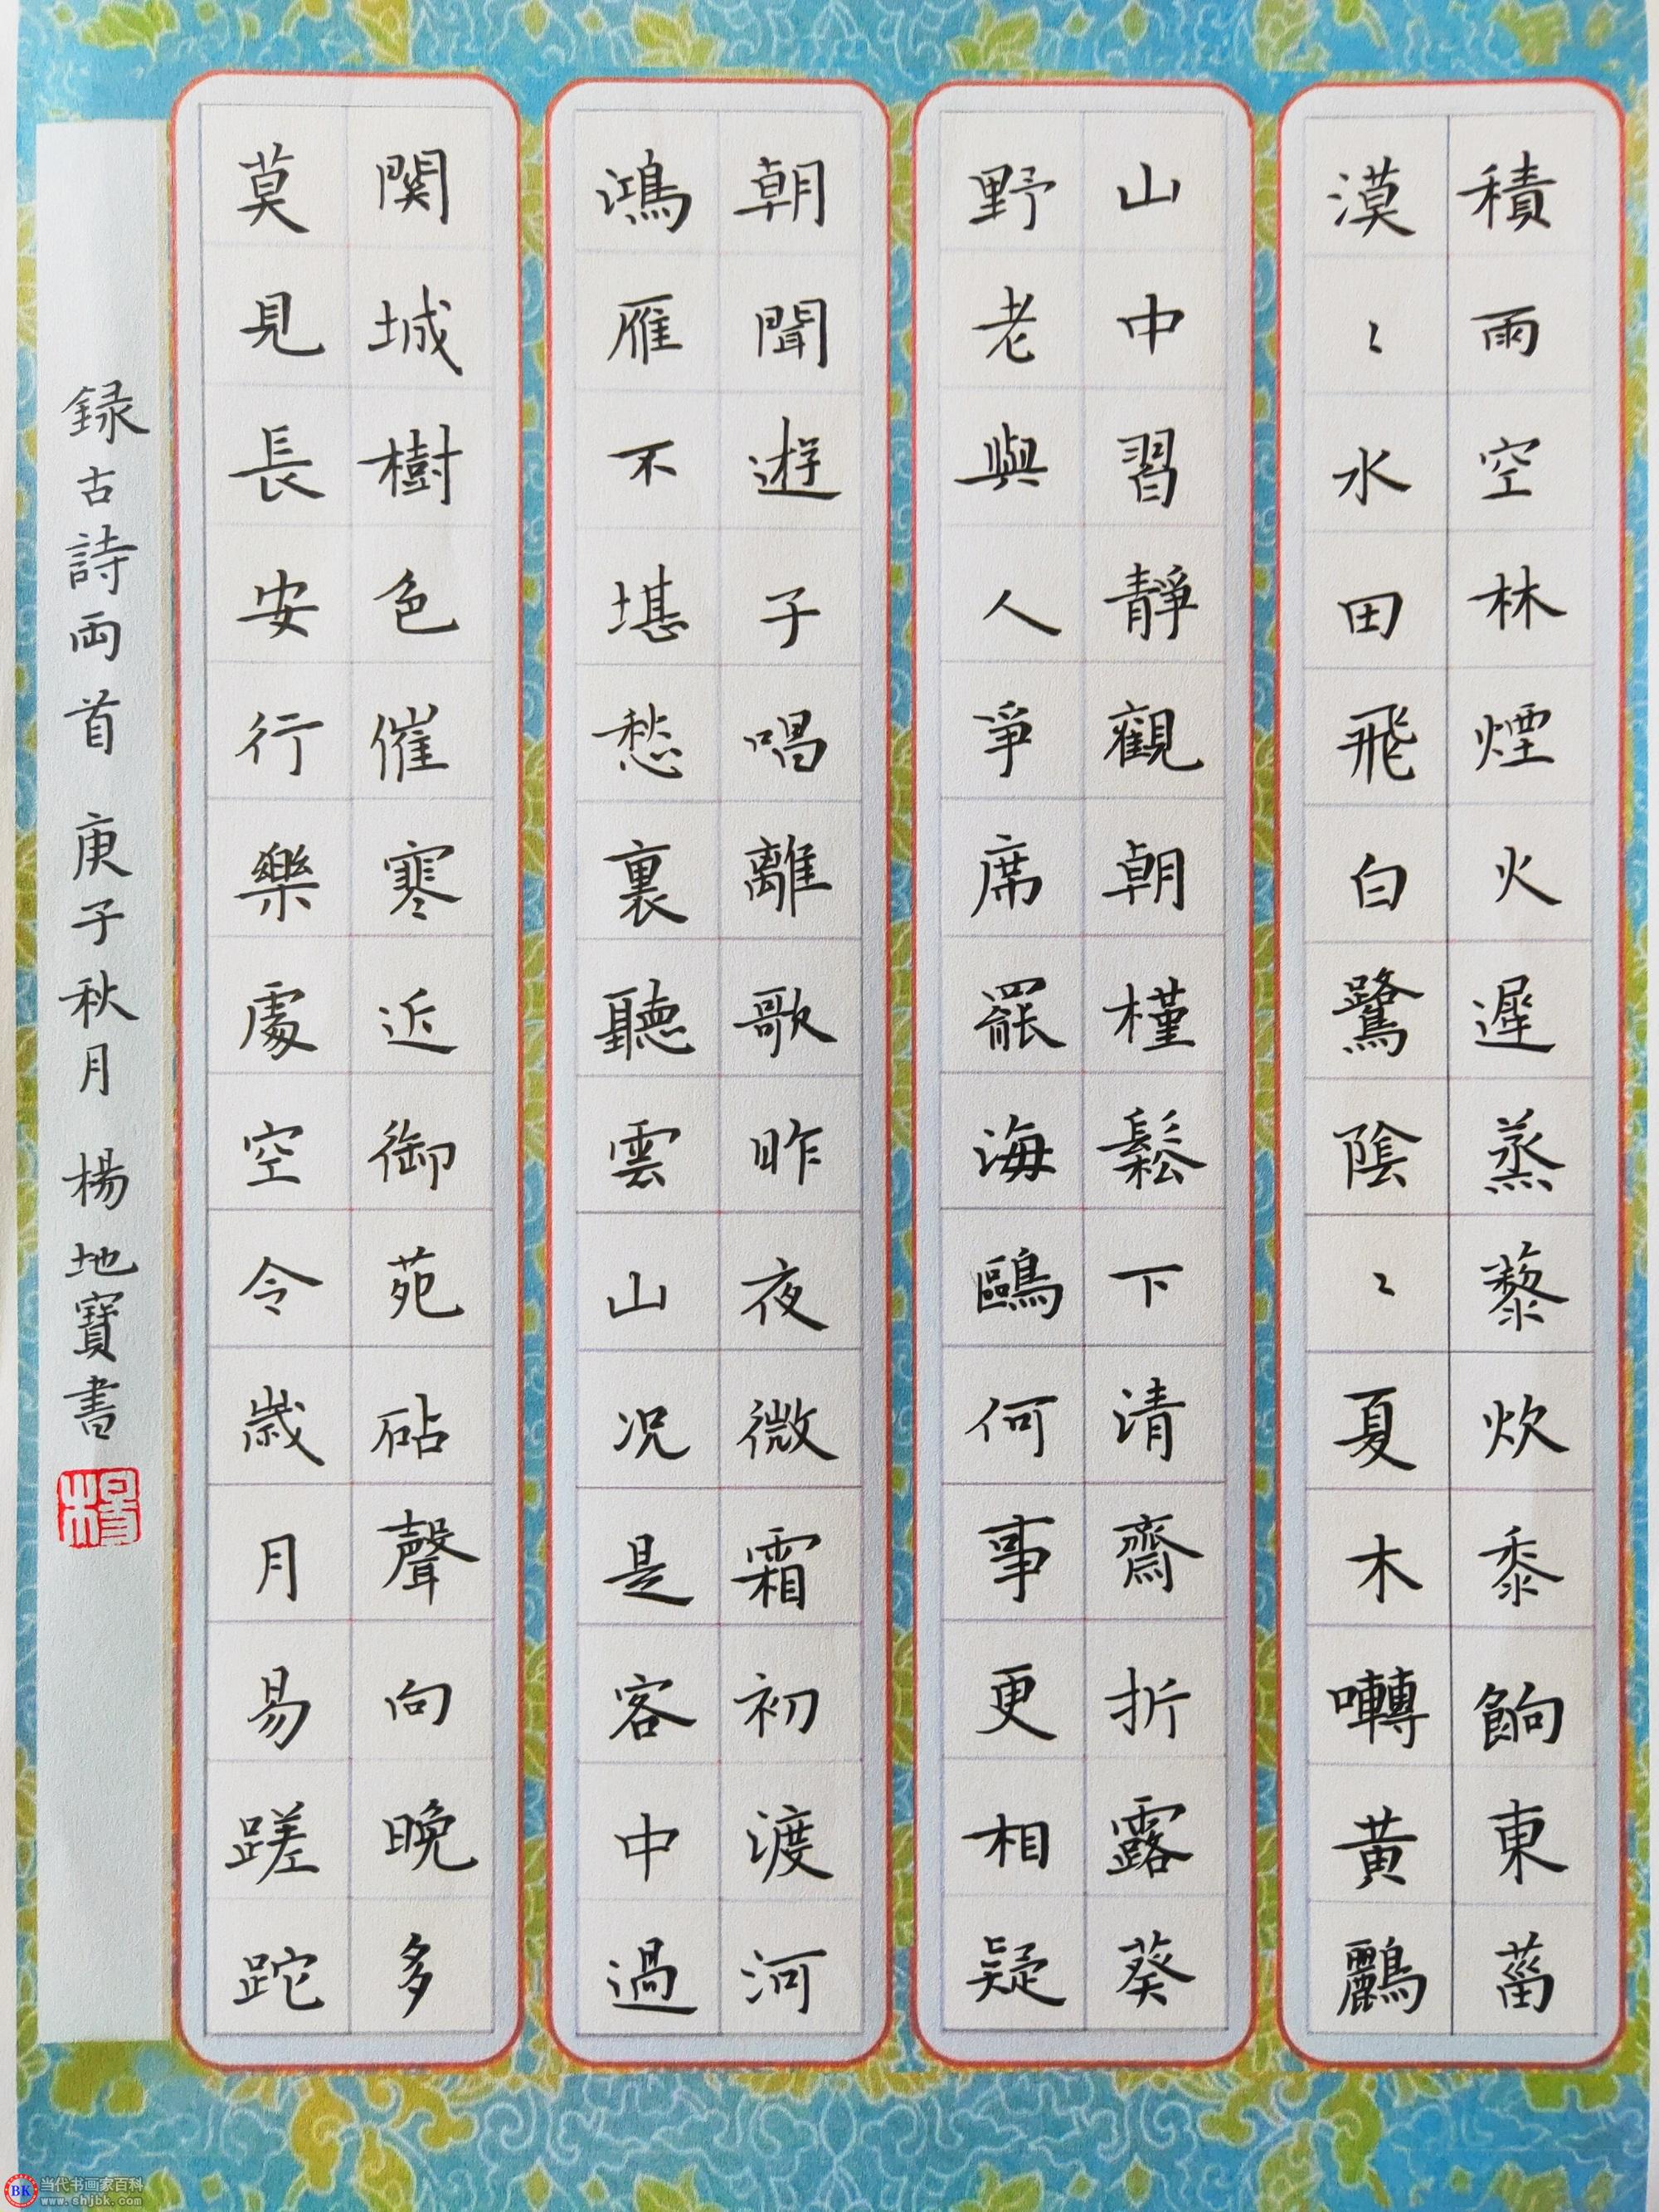 積雨空林煙火遲蒸藜炊黍餉東菑
漠〻水田飛白鷺陰〻夏木囀黃鸝
山中習靜觀朝槿鬆下清齋折露葵
野老與人爭席罷海鷗何事更相疑
朝聞遊子唱離歌昨夜微霜初渡河
鴻雁不堪愁裏聽雲山况是客中過
関城樹色催寒近御苑砧聲向晚多
莫見長安行樂處空令歲月易蹉跎
録古詩両首 庚子秋月 楊地寶書
楊
BK 当代书画家百科
www.shjbk.com